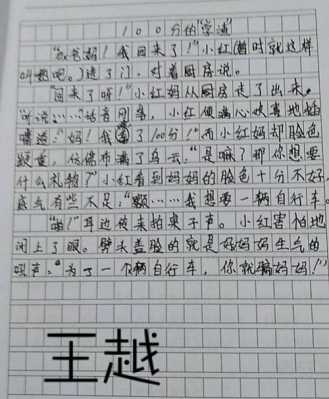 100分的“幸运”
“爸妈！我回来了！”小红(暂时就这样
叫她吧。)进了门，对着厨房说。
“回来了呀！”小红妈从厨房走了出来。
“听说……”话音刚落，小红便满心欢喜地
嚷道：“妈！我考了100分！”而小红妈却脸色
凝重，仿佛布满了乌云，“是嘛？那你想要
什么礼物？”小红看到妈妈的脸色十分不好，
底气有些不足，“额……我想要一辆自行车。
“啪！”耳边传来拍桌子声。小红害怕地
闭上了眼。劈头盖脸的就是妈妈生气的
吼声：“为了一个辆自行车，你就骗妈妈！”
王越